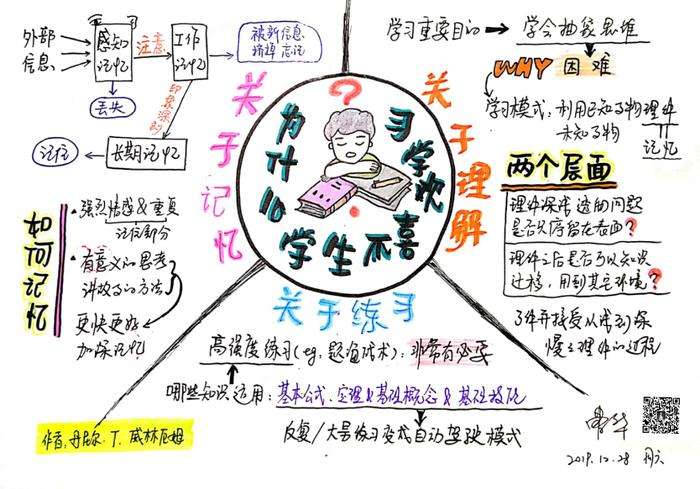 为什么学生不喜欢学习?
关于记忆
外部
信息
感知
记忆
注意
工作
记忆
被新信息
挤掉 忘记
丢失
印象深刻
长期记忆
记住
如何记忆
强烈情感&重复
记住部分
有意义的思考
讲故事的方法
更快更好
加深记忆
关于理解
学习重要目的
学会抽象思维
WHY 困难
学习模式:利用已知事物理解
未知事物
记忆
两个层面
理解深度 遇到问题
是否只停留在表面?
理解之后是否可以知识
迁移,用到其它环境?
了解并接受从浅到深
慢慢理解的过程
关于练习
高强度练习(eg.题海战术):非常有必要
哪些知识适用:基本公式、定理&基础概念&基础技能
反复/大量练习变成自动驾驶模式
作者:丹尼尔.T.威林厄姆
2019.12.28 周六